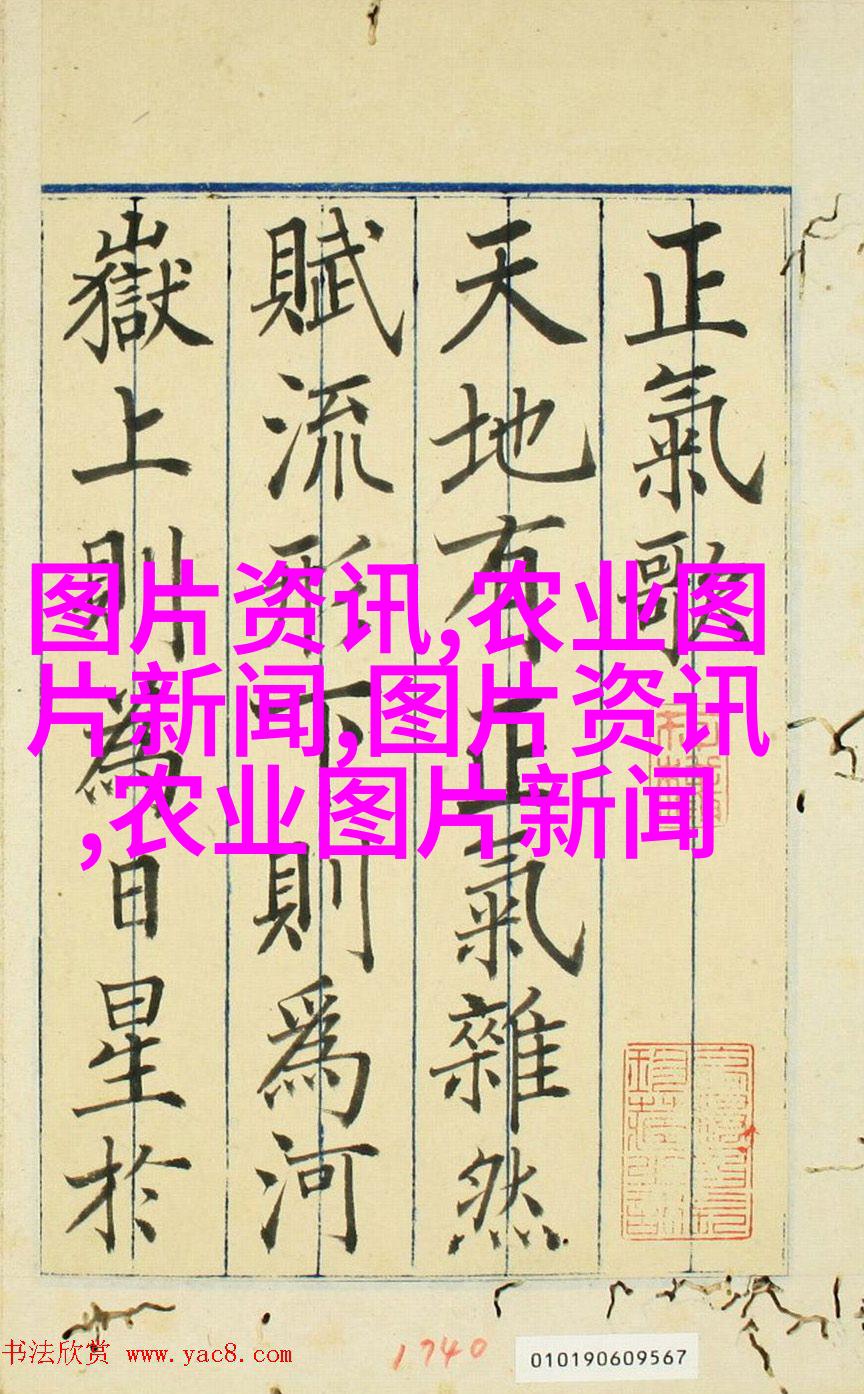 正氣歌
天地有正氣雜然
賦流形下則爲河
嶽上則爲日星於
图片资讯,农业图
片新闻,图片资讯
,农业图片新闻
书法欣赏 www.yac8.com
1740
010190609567